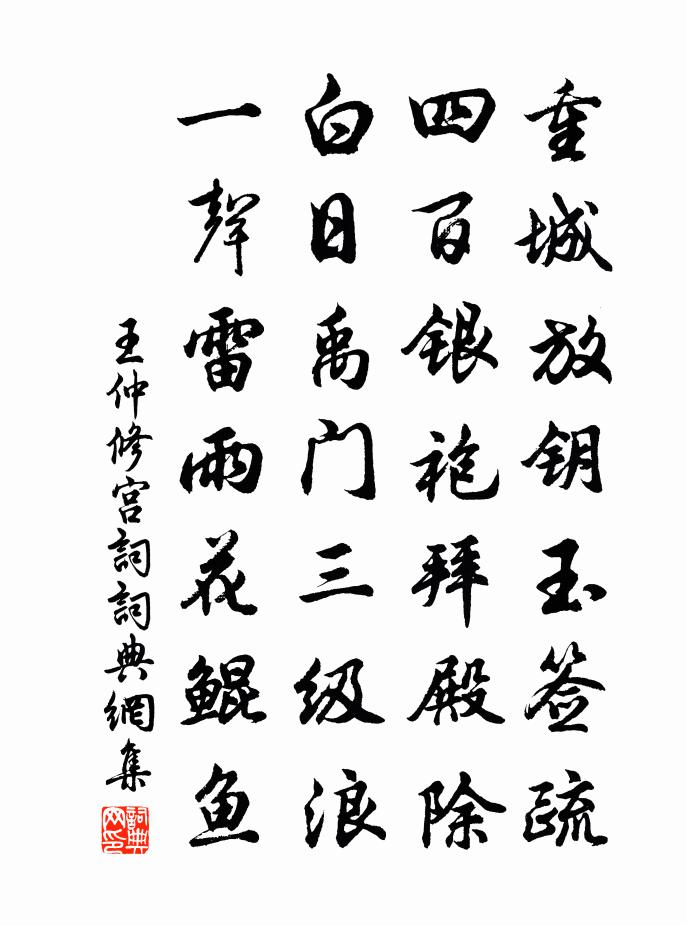 重城放钥玉签疏
四百银袍拜殿除
白日禹门三级浪
一聲雷雨花鲲鱼
王仲修宫詞詞典網集
詞典
网印